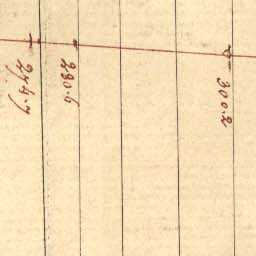 274.7
280.6
300.2